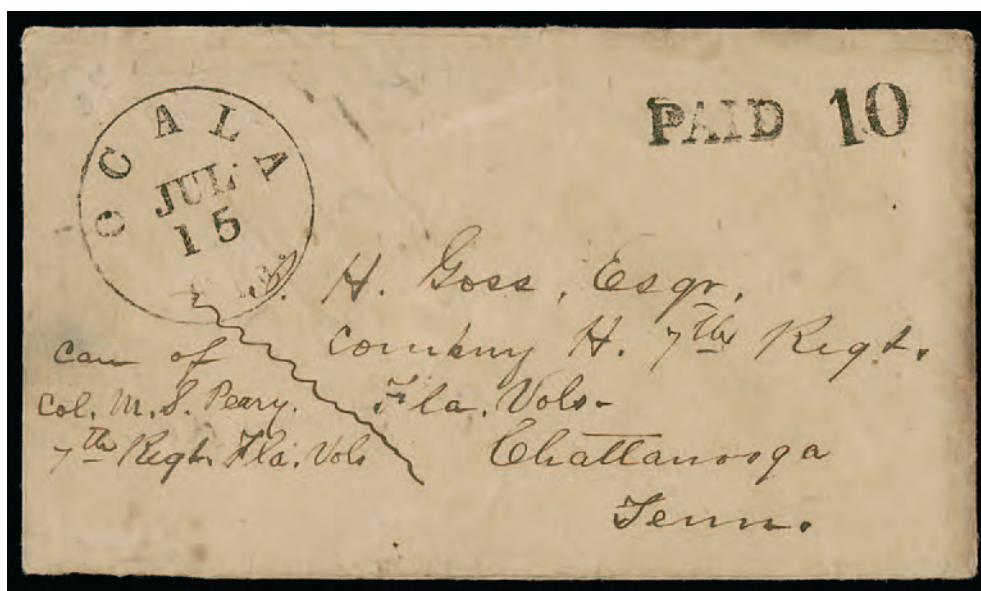 OCALA
JUL
15
PAID 10
S. H. Goss, Esqr,
Company H. 7th Regt.
Fla. Vols-
Chattanooga
Tenn.
Care of
Col. M. S. Peary.
7th Regt. Fla. Vols